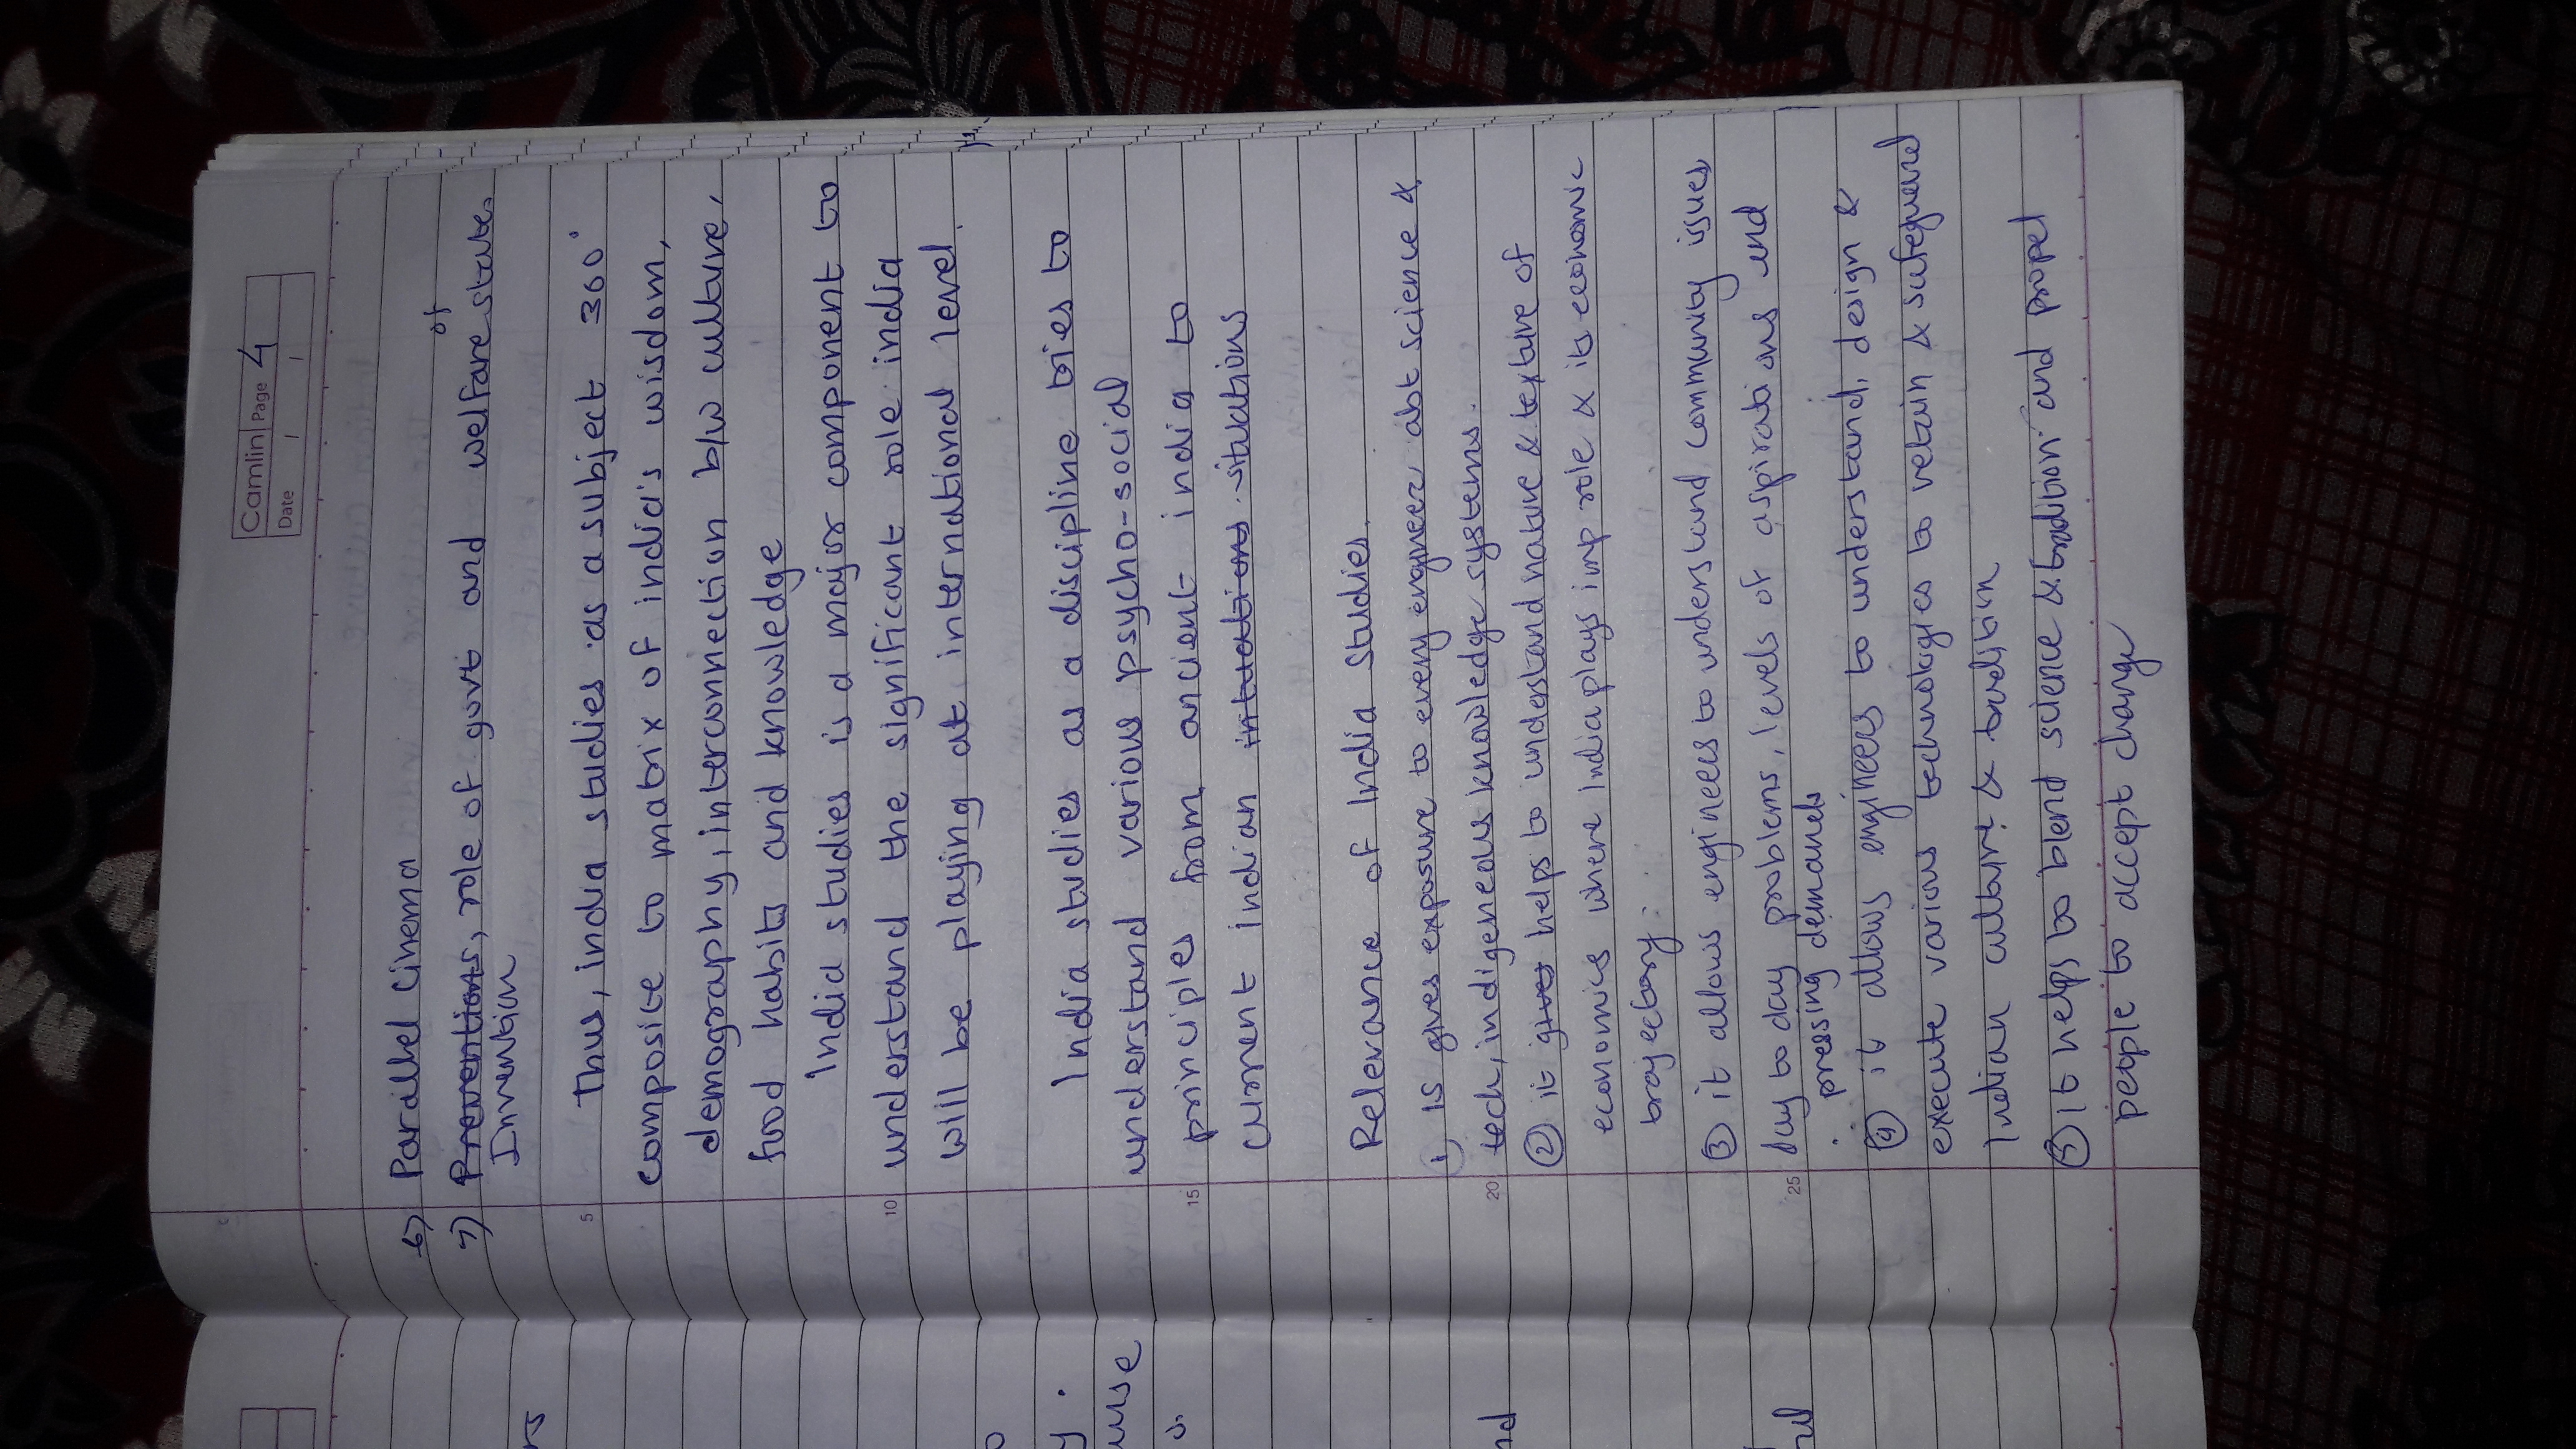 Camlin Page 4
Date / /
6) Parallel Cinema
of
7) Preventions, role of govt and welfare state.
Invention
5 Thus, india studies as a subject 360°
composite to matrix of india's wisdom,
demography, interconnection b/w culture,
food habits and knowledge
India studies is a major component to
10 understand the significant role india
will be playing at international level.
India studies as a discipline tries to
understand various psycho-social
15 principles from ancient india to
current indian intuations situations
Relevance of India Studies.
1) IS gives exposure to every engineer abt science &
20 tech, indigeneous knowledge systems.
② it gives helps to understand nature & texture of
economics where India plays imp role & its economic
trajectory.
③ it allows engineers to understand community issues
25 day to day problems, levels of aspirations and
pressing demands
④ it allows engineers to understand, design &
execute various technologies to retain & safeguard
Indian culture & tradition
⑤ it helps to blend science & tradition and propel
people to accept change